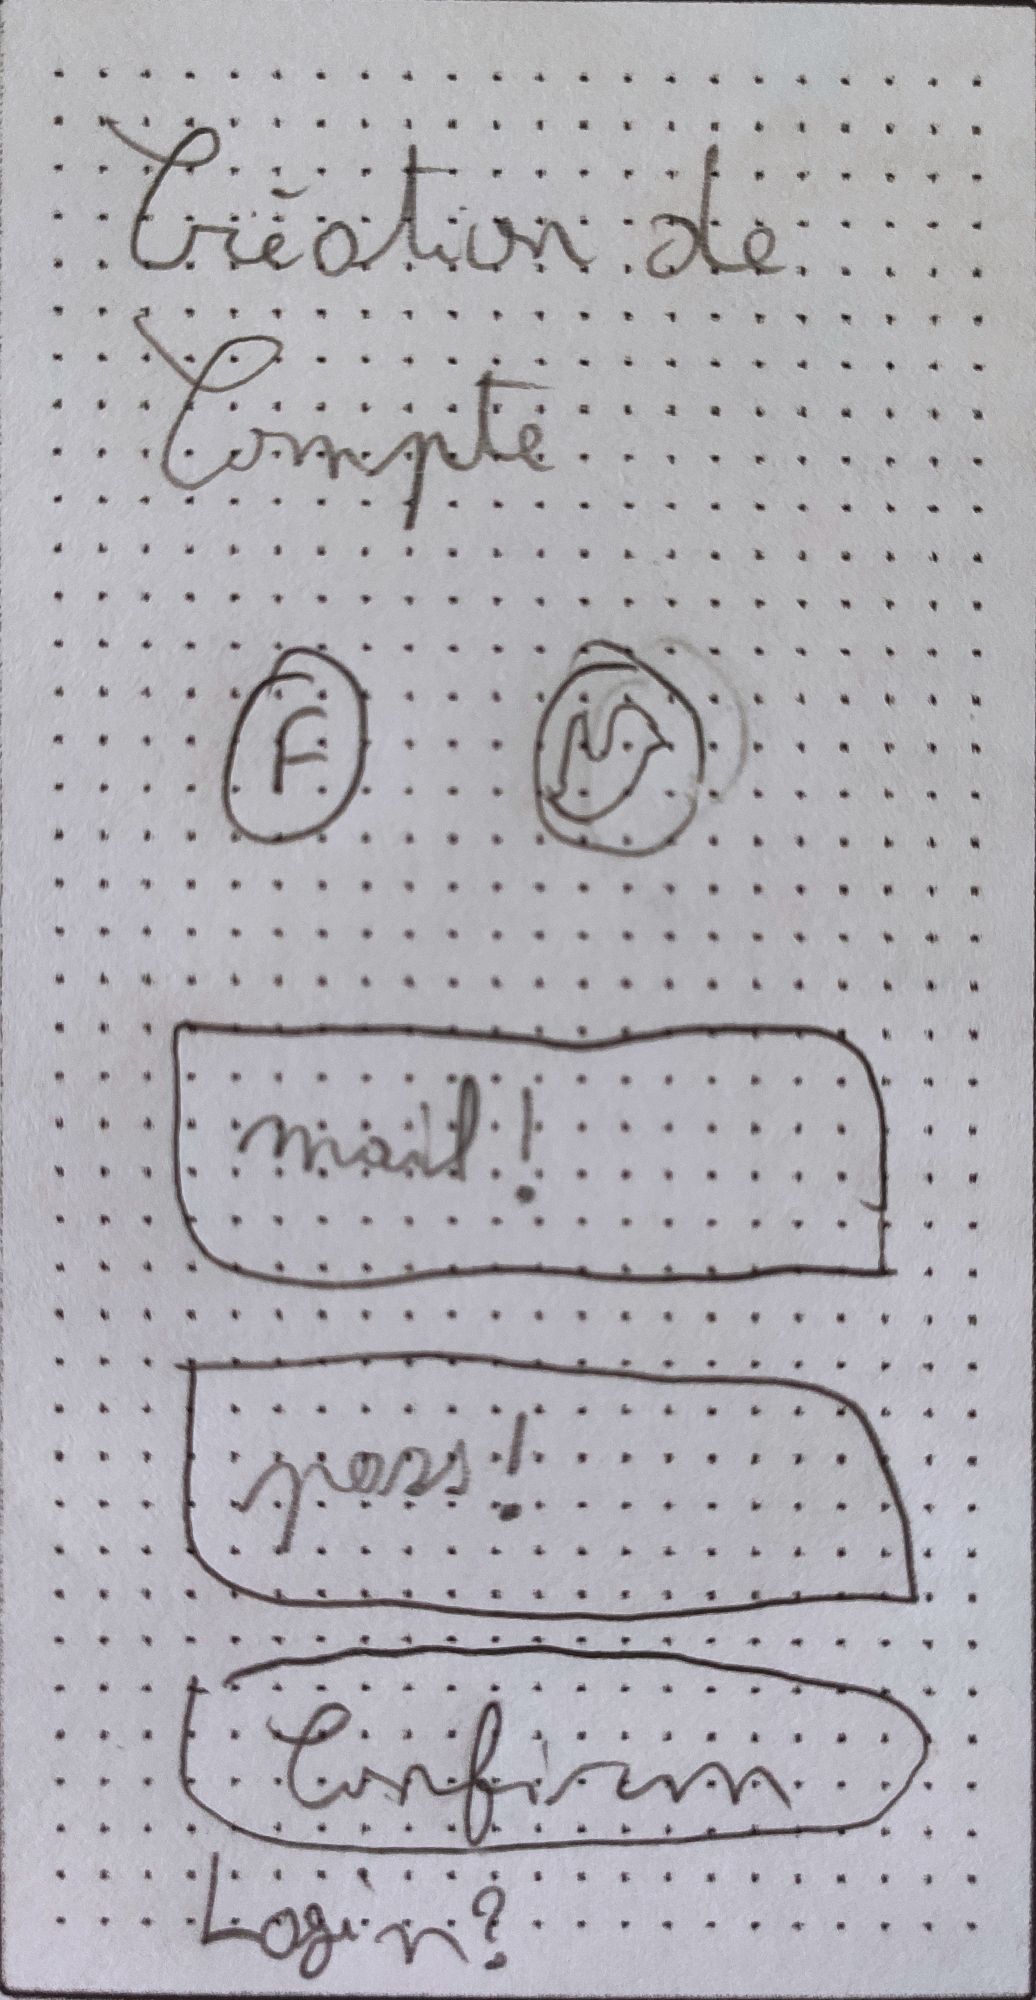 Création de
Compte
F
mail!
pass!
Confirm
Login?